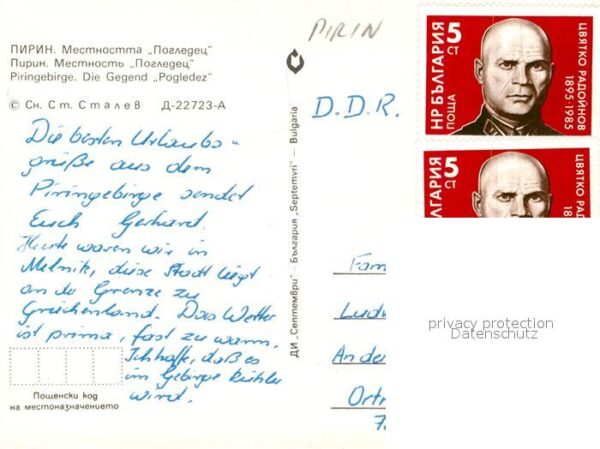 ПИРИН. Местността „Погледец"
Пирин. Местность „Погледец"
Piringebirge. Die Gegend „Pogledez"
© Сн. Ст. Сталев Д-22723-А
Die besten Urlaubs-
grüße aus dem
Piringebirge sendet
Euch Gerhard.
Heute waren wir in
Melnik, diese Stadt liegt
an de Grenze zu
Griechenland. Das Wetter
ist prima, fast zu warm.
Ich hoffe, daß es
im Gebirge kühler
wird.
Пощенски код
на местоназначението
ДИ „Септември" — България „Septemvri" — Bulgaria
PIRIN
D.D.R.
5
СТ
НР БЪЛГАРИЯ
ПОЩА
ЦВЯТКО РАДОЙНОВ
1895·1985
5
СТ
ГАРИЯ
ЦВЯТКО РАД
18
Fam
Ludw
Ande
Ortr
7
privacy protection
Datenschutz